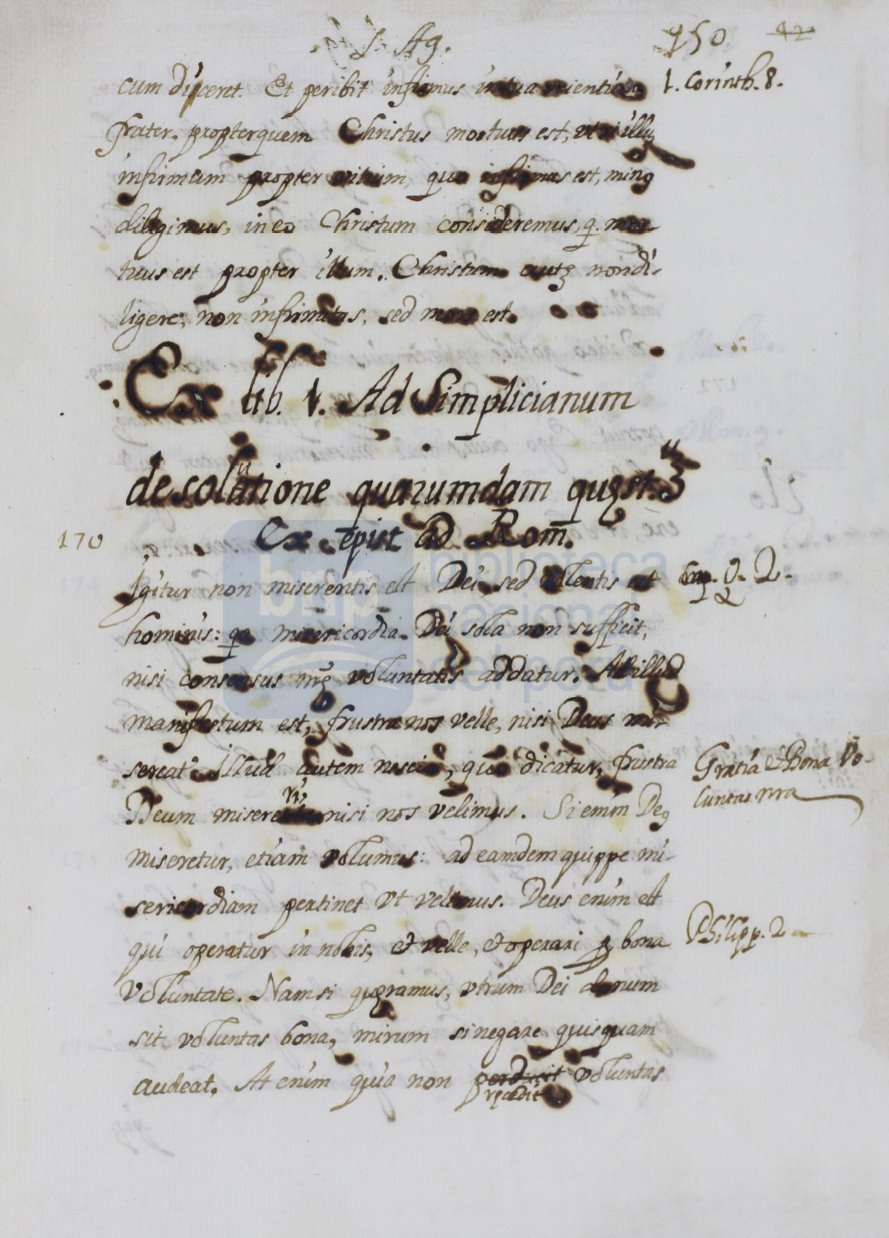 S. Ag.
150 42
cum diceret. Et peribit infirmus in tua scientia 1. Corinth. 8.
frater. propterquem Christus mortuus est, ut si illũ
infirmum propter vitium, quo infirmus est, minꝰ
diligimus, in eo Christum consideremus, q̃. mor
tuus est propter illum. Christum autẽ non di-
ligere, non infirmitas, sed mors est.
Ex lib. 1. Ad Simplicianum
de solutione quarumdam quæst.
Ex epist ad Rom̃.
170
Igitur non miserentis est Dei, sed volentis est 2.
hominis: qa misericordia Dei sola non sufficit,
nisi consensus nr̃ȩ voluntatis addatur. At illud
manifestum est, frustra nos velle, nisi Deus mi-
sereatr. Illud autem nescio, quo dicatur, frustra Gratia & Bona Vo-
luntas nra
Deum misereri nisi nos velimus. Si enim Deꝰ
miseretur, etiam volumus: ad eamdem quippe mi-
sericordiam pertinet vt velimus. Deus enim est
qui operatur in nobis, et velle, et operari ꝓ bona Philipp. 2
voluntate. Nam si quȩramus, vtrum Dei donum
sit voluntas bona, mirum si negare quisquam
audeat. At enim quia non voluntas
bnp biblioteca
nacional
del perú